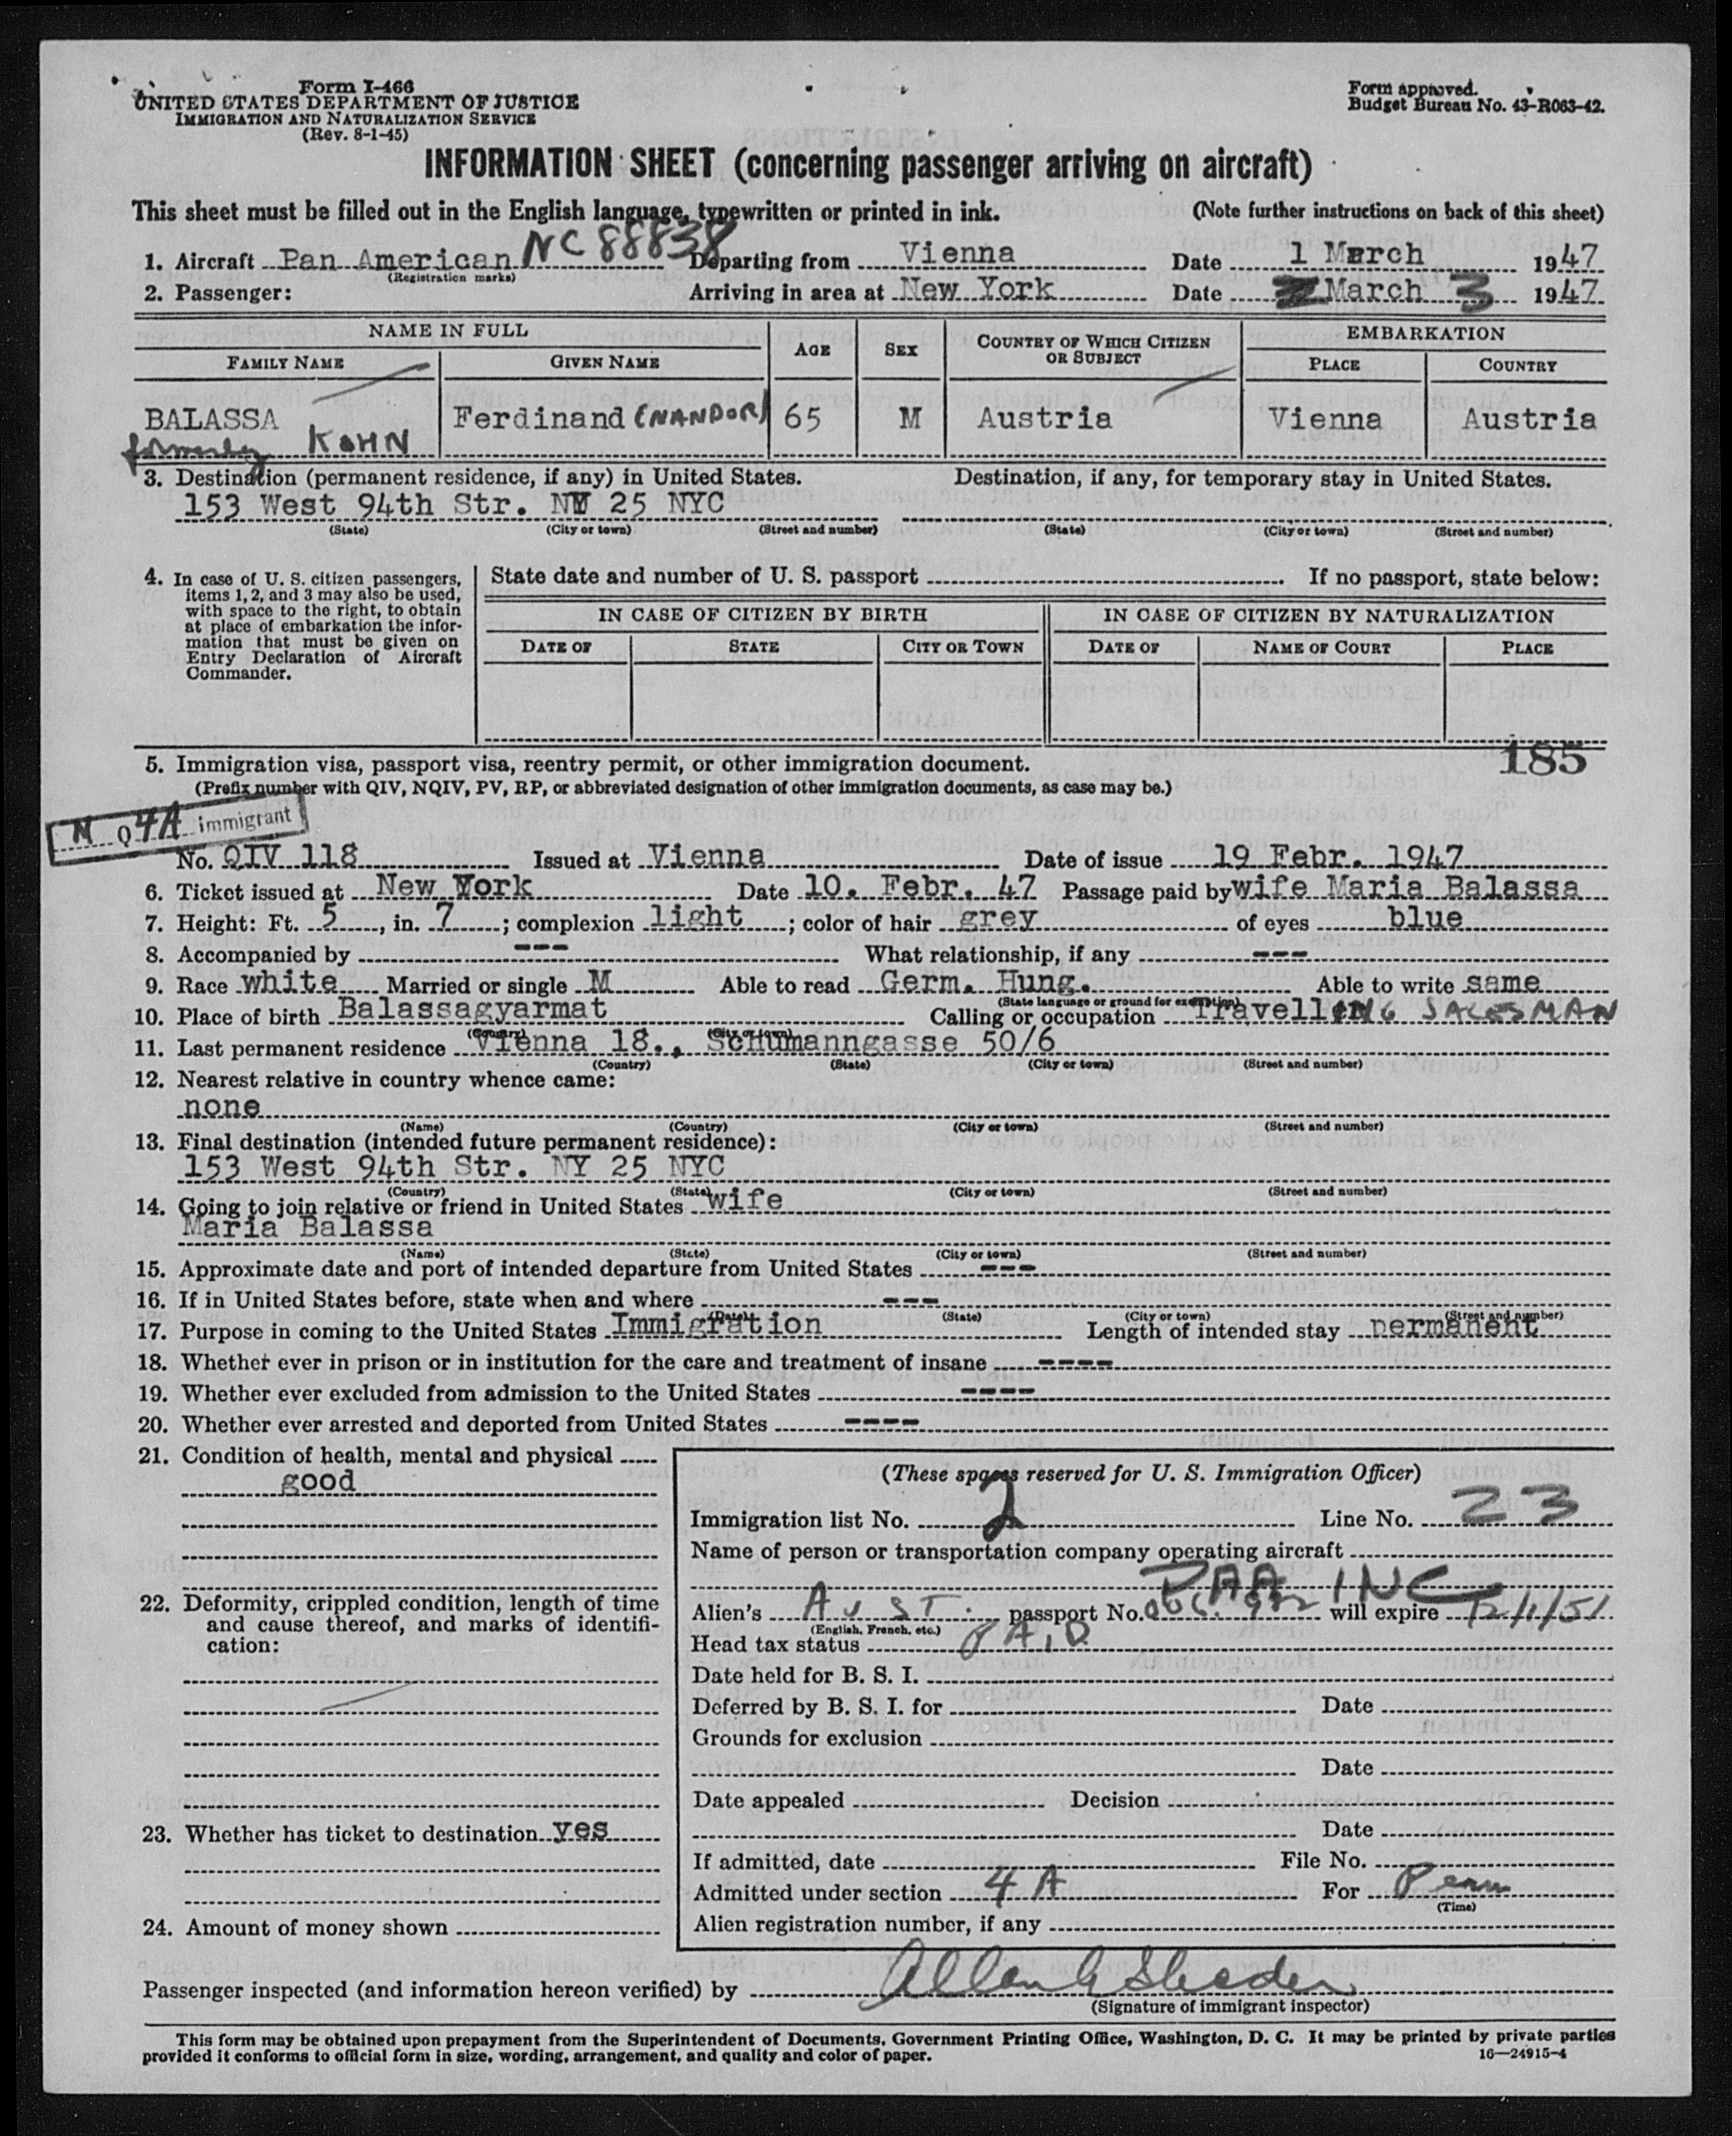 Form I-466
UNITED STATES DEPARTMENT OF JUSTICE
IMMIGRATION AND NATURALIZATION SERVICE
(Rev. 8-1-45)
Form approved.
Budget Bureau No. 43-R063-42.
INFORMATION SHEET (concerning passenger arriving on aircraft)
This sheet must be filled out in the English language, typewritten or printed in ink. (Note further instructions on back of this sheet)
1. Aircraft Pan American NC 88838 Departing from Vienna Date 1 March 1947
(Registration marks)
2. Passenger: Arriving in area at New York Date March 3 1947
NAME IN FULL AGE SEX COUNTRY OF WHICH CITIZEN OR SUBJECT EMBARKATION
FAMILY NAME GIVEN NAME PLACE COUNTRY
BALASSA Ferdinand (NANDOR) 65 M Austria Vienna Austria
formerly KOHN
3. Destination (permanent residence, if any) in United States. Destination, if any, for temporary stay in United States.
153 West 94th Str. NY 25 NYC
(State) (City or town) (Street and number) (State) (City or town) (Street and number)
4. In case of U. S. citizen passengers, items 1, 2, and 3 may also be used, with space to the right, to obtain at place of embarkation the information that must be given on Entry Declaration of Aircraft Commander.
State date and number of U. S. passport If no passport, state below:
IN CASE OF CITIZEN BY BIRTH IN CASE OF CITIZEN BY NATURALIZATION
DATE OF STATE CITY OR TOWN DATE OF NAME OF COURT PLACE
185
5. Immigration visa, passport visa, reentry permit, or other immigration document.
(Prefix number with QIV, NQIV, PV, RP, or abbreviated designation of other immigration documents, as case may be.)
N Q 4A immigrant
No. QIV 118 Issued at Vienna Date of issue 19 Febr. 1947
6. Ticket issued at New York Date 10. Febr. 47 Passage paid by wife Maria Balassa
7. Height: Ft. 5, in. 7; complexion light; color of hair grey of eyes blue
8. Accompanied by --- What relationship, if any ---
9. Race white Married or single M Able to read Germ. Hung. Able to write same
(State language or ground for exemption)
10. Place of birth Balassagyarmat Calling or occupation Travelling SALESMAN
(Country) (City or town)
11. Last permanent residence Vienna 18., Schumanngasse 50/6
(Country) (State) (City or town) (Street and number)
12. Nearest relative in country whence came:
none
(Name) (Country) (City or town) (Street and number)
13. Final destination (intended future permanent residence):
153 West 94th Str. NY 25 NYC
(Country) (State) (City or town) (Street and number)
14. Going to join relative or friend in United States wife
Maria Balassa
(Name) (State) (City or town) (Street and number)
15. Approximate date and port of intended departure from United States ---
16. If in United States before, state when and where ---
(Date) (State) (City or town) (Street and number)
17. Purpose in coming to the United States Immigration Length of intended stay permanent
18. Whether ever in prison or in institution for the care and treatment of insane ----
19. Whether ever excluded from admission to the United States ----
20. Whether ever arrested and deported from United States ----
21. Condition of health, mental and physical
good
22. Deformity, crippled condition, length of time and cause thereof, and marks of identification:
23. Whether has ticket to destination yes
24. Amount of money shown
(These spaces reserved for U. S. Immigration Officer)
Immigration list No. 2 Line No. 23
Name of person or transportation company operating aircraft
PAA INC
Alien's AUST. passport No. will expire 12/1/51
(English, French, etc.)
Head tax status PAID
Date held for B. S. I.
Deferred by B. S. I. for Date
Grounds for exclusion
Date
Date appealed Decision
Date
If admitted, date File No.
Admitted under section 4 A For Perm
(Time)
Alien registration number, if any
Passenger inspected (and information hereon verified) by
(Signature of immigrant inspector)
This form may be obtained upon prepayment from the Superintendent of Documents, Government Printing Office, Washington, D. C. It may be printed by private parties
provided it conforms to official form in size, wording, arrangement, and quality and color of paper. 16—24915-4